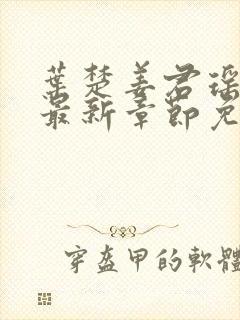 葉楚姜君瑶
最新章節免
穿盔甲的軟體